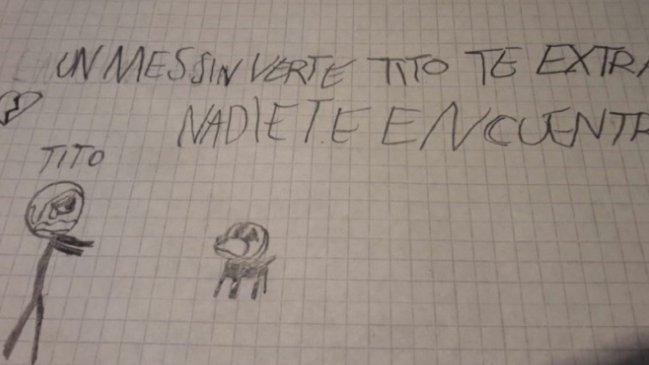 UN MES SIN VERTE TITO TE EXTRA
NADIE TE ENCUENTR
TITO